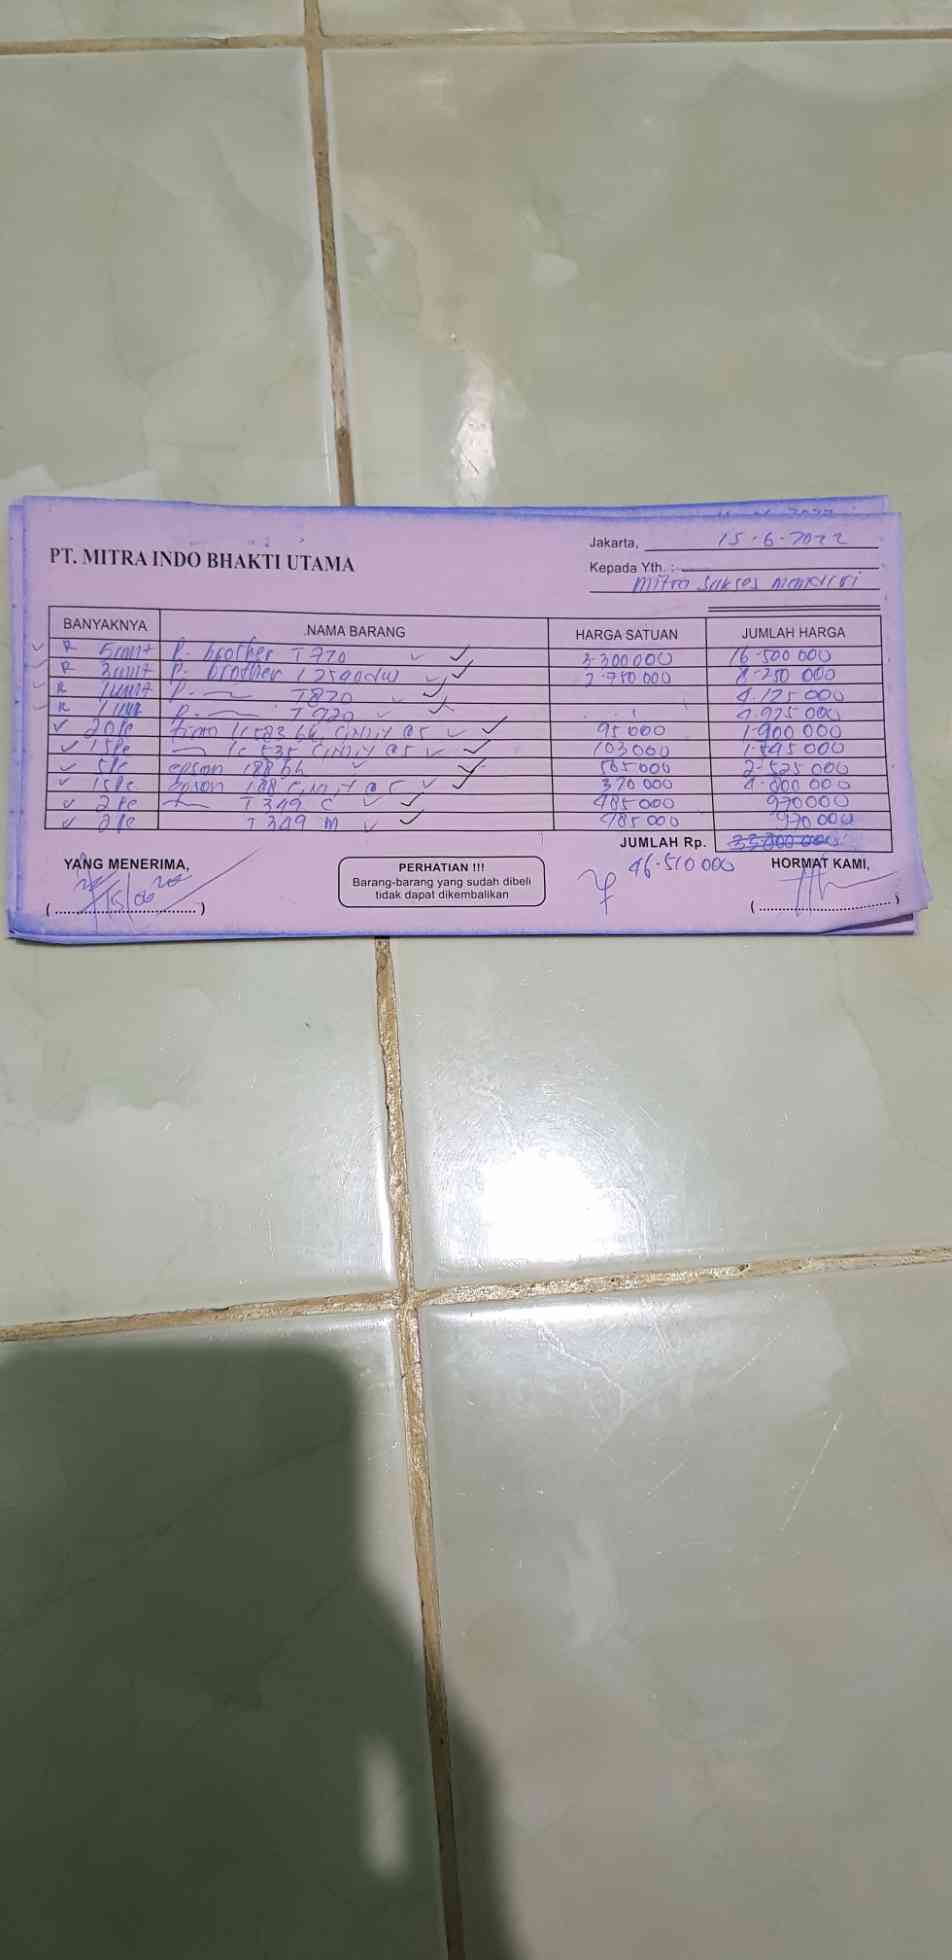 PT. MITRA INDO BHAKTI UTAMA
Jakarta, 15-6-2022
Kepada Yth. :
Mitra Sukses Mandiri
BANYAKNYA NAMA BARANG HARGA SATUAN JUMLAH HARGA
5 unit P. brother T 770 3.300 000 16.500 000
3 unit P. brother 2.750 000 8.250 000
1 unit P. T820 4.125 000
1 unit P. T 920
20 pc 95 000 1.900 000
15 pc 103 000
5 pc epson 188 bk 2.525 000
15 pc epson 188 370 000
2 pc T 349 C 485 000 970 000
2 pc T 349 M 485 000 970 000
JUMLAH Rp.
46.510 000
YANG MENERIMA,
PERHATIAN !!!
Barang-barang yang sudah dibeli
tidak dapat dikembalikan
HORMAT KAMI,